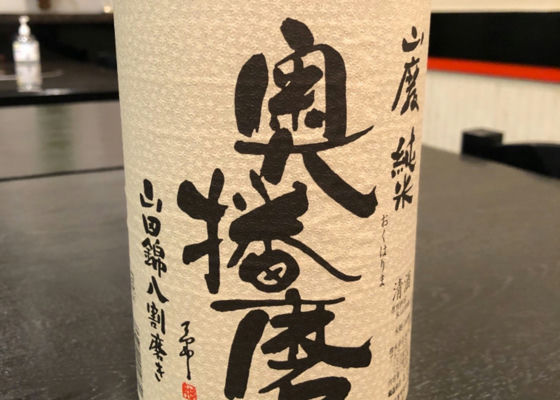 山廃 純米
おくはりま
清酒
奥播磨
山田錦八割磨き